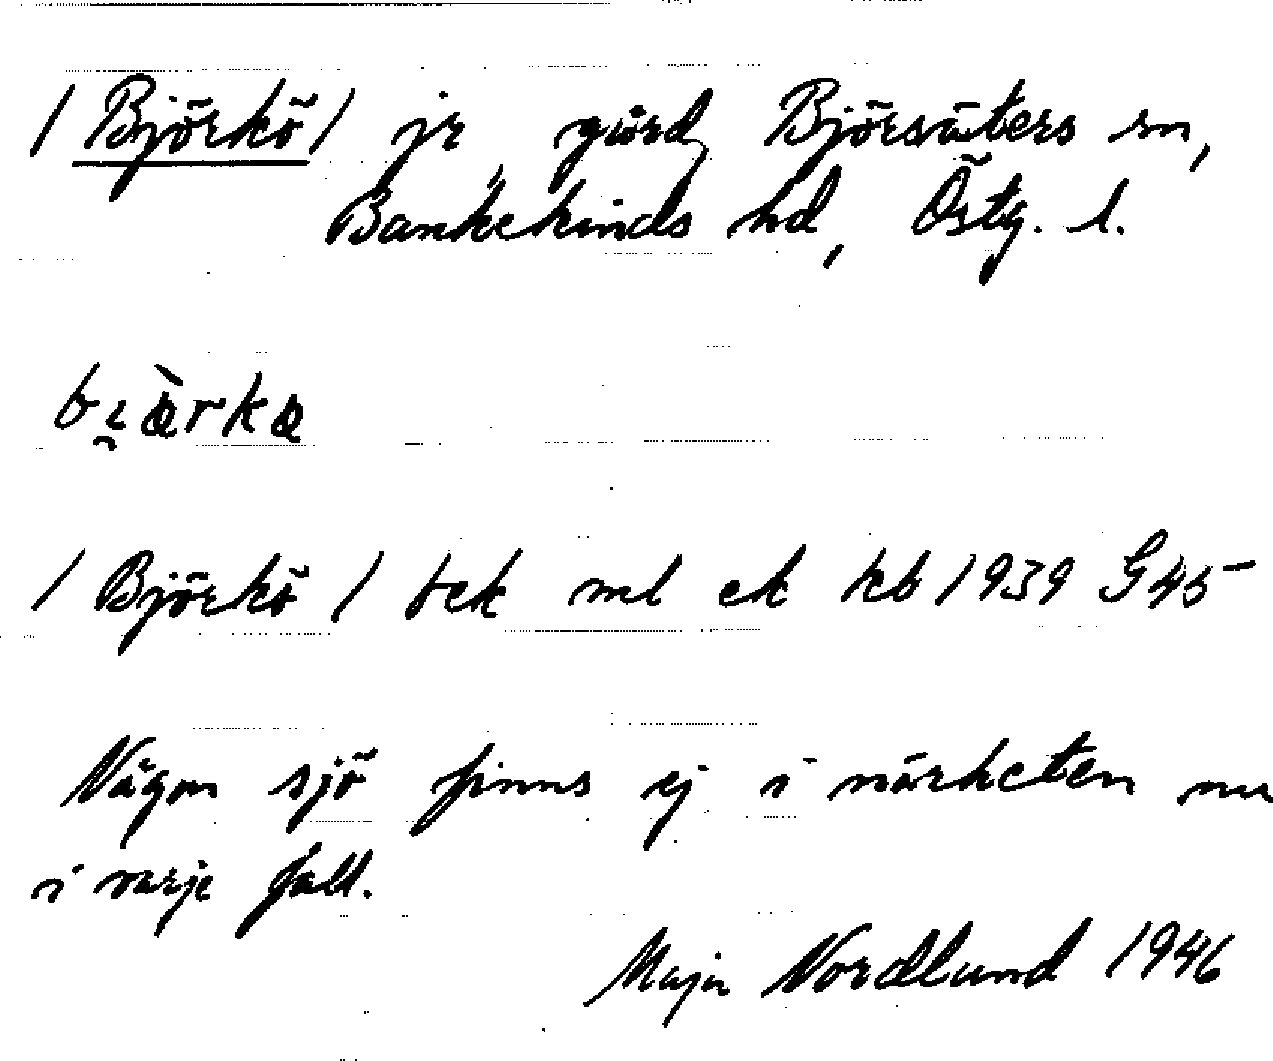 / Björkö / jr, gård, Björsäters sn,
Bankekinds hd, Östg. l.
bi̯ æ̀rkæ
/ Björkö / bek ml ek kb 1939 G45
Någon sjö finns ej i närheten nu
i varje fall.
Maja Nordlund 1946